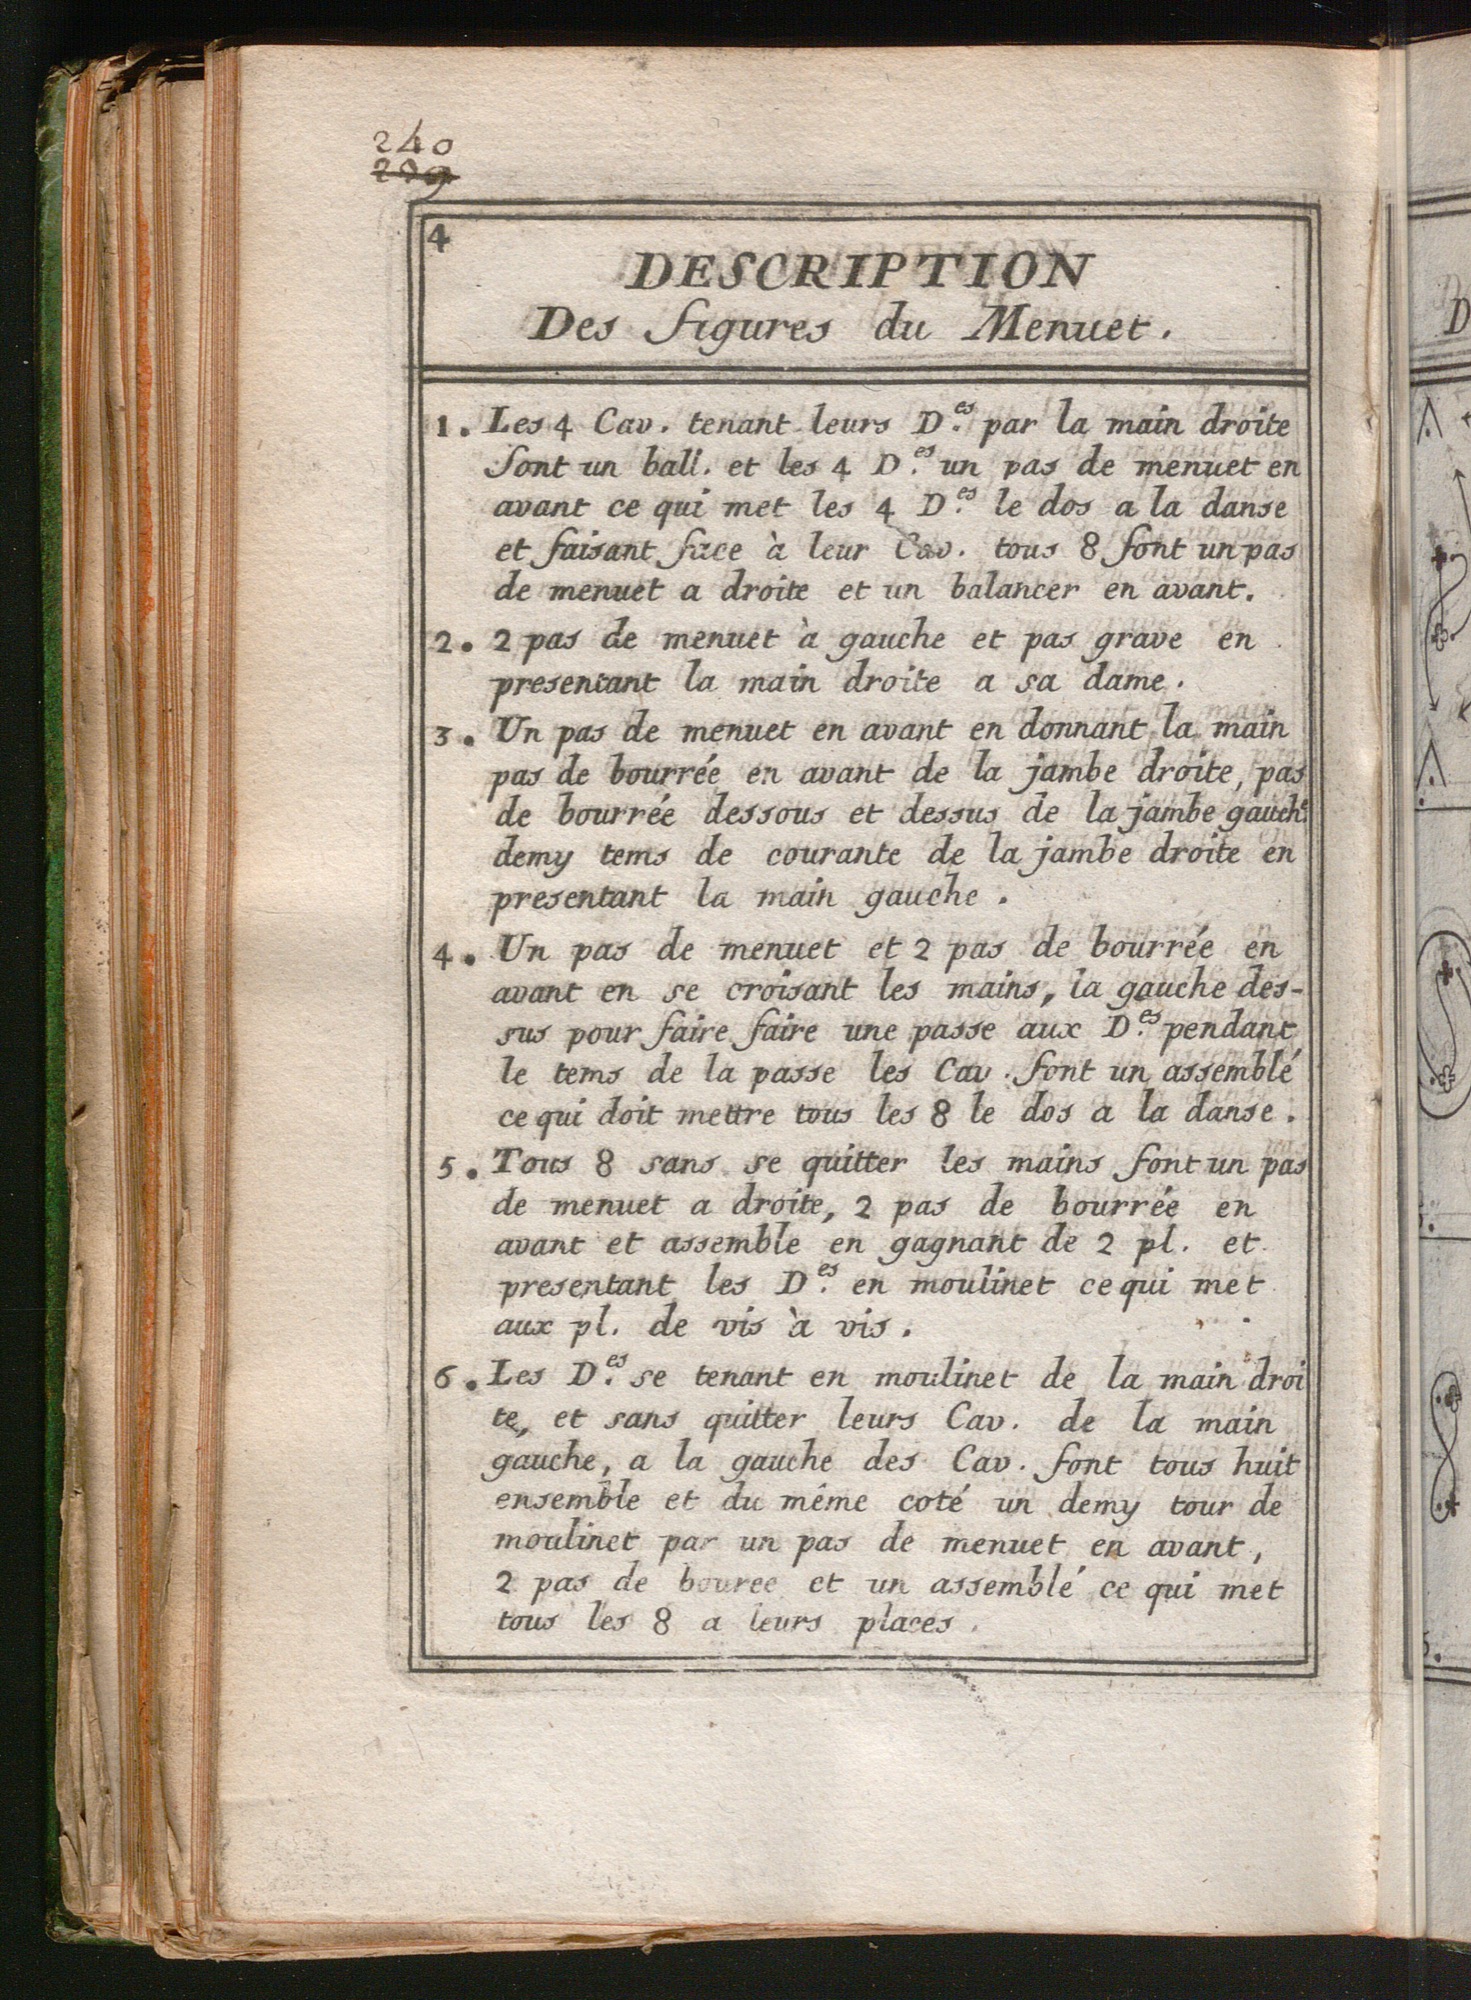 240
299
4
DESCRIPTION
Des figures du Menuet.
1. Les 4 Cav. tenant leurs D.es par la main droite
font un ball. et les 4 D.es un pas de menuet en
avant ce qui met les 4 D.es le dos a la danse
et faisant face à leur Cav. tous 8 font un pas
de menuet a droite et un balancer en avant.
2. 2 pas de menuet à gauche et pas grave en
presentant la main droite a sa dame.
3. Un pas de menuet en avant en donnant la main
pas de bourrée en avant de la jambe droite, pas
de bourrée dessous et dessus de la jambe gauche
demy tems de courante de la jambe droite en
presentant la main gauche.
4. Un pas de menuet et 2 pas de bourrée en
avant en se croisant les mains, la gauche des-
sus pour faire faire une passe aux D.es pendant
le tems de la passe les Cav. font un assemblé
ce qui doit mettre tous les 8 le dos a la danse.
5. Tous 8 sans se quitter les mains font un pas
de menuet a droite, 2 pas de bourrée en
avant et assemble en gagnant de 2 pl. et
presentant les D.es en moulinet ce qui met
aux pl. de vis à vis.
6. Les D.es se tenant en moulinet de la main droi
te, et sans quitter leurs Cav. de la main
gauche, a la gauche des Cav. font tous huit
ensemble et du même coté un demy tour de
moulinet par un pas de menuet en avant,
2 pas de bouree et un assemblé ce qui met
tous les 8 a leurs places.
D